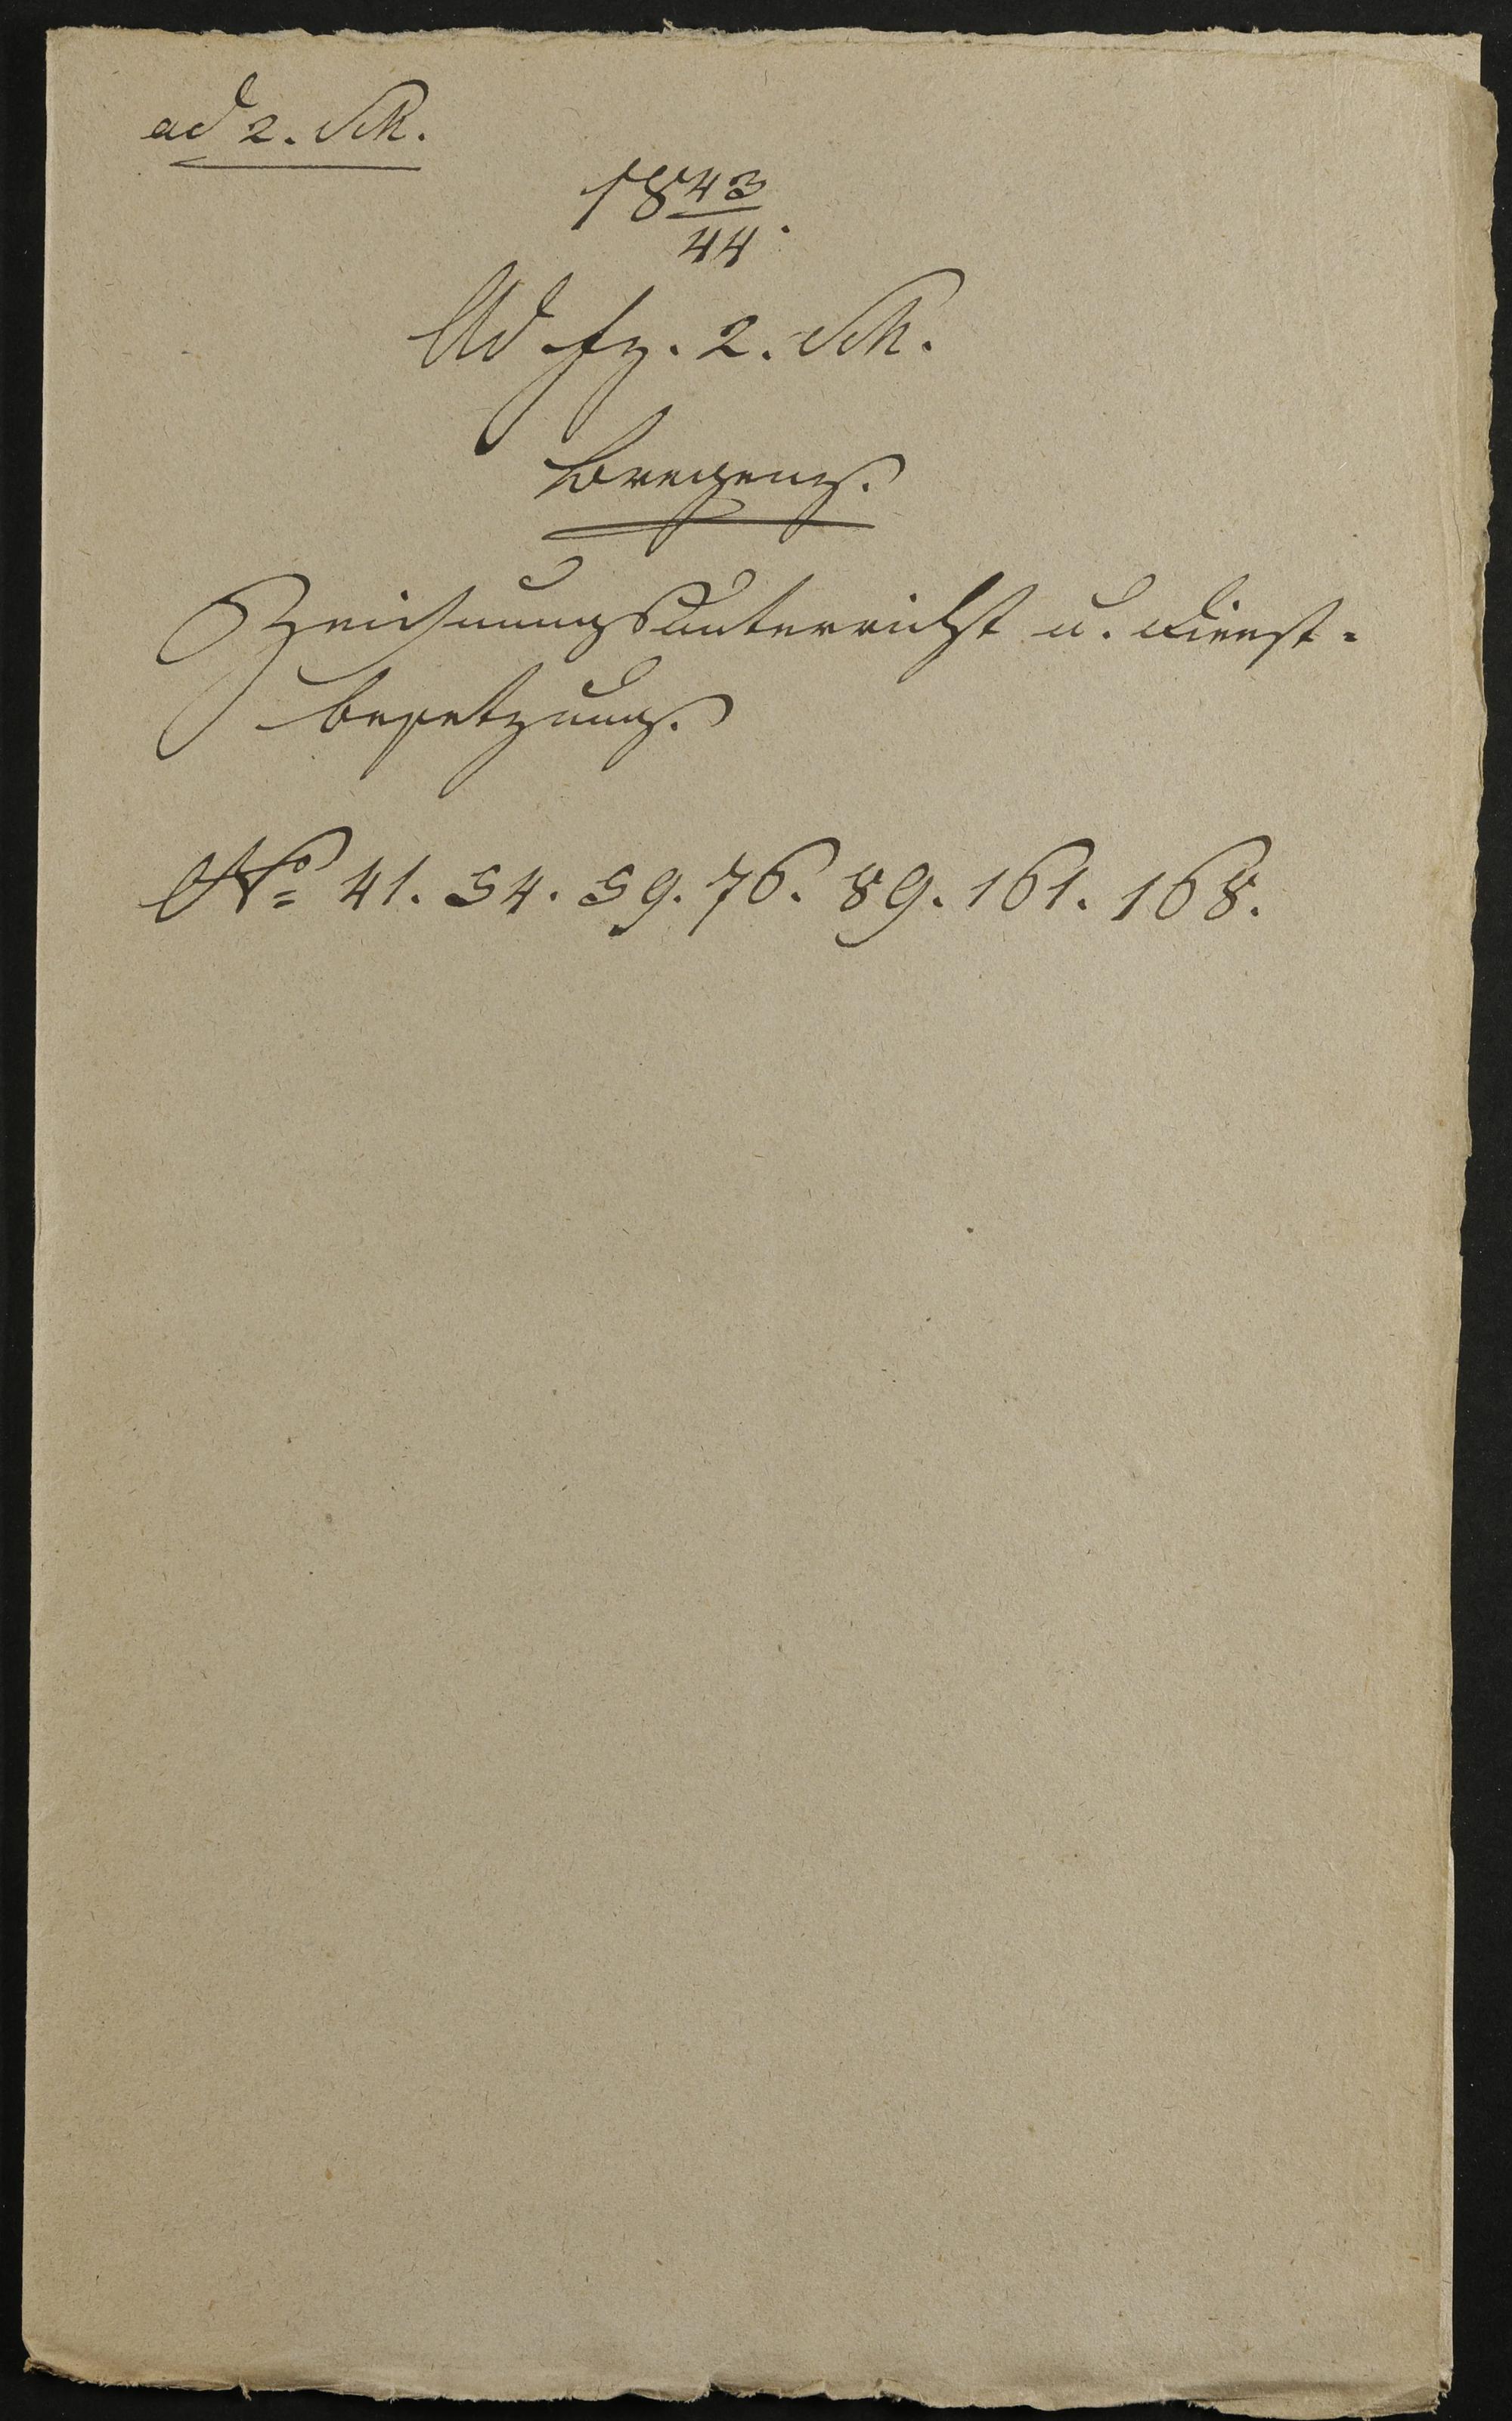 ad 2. Sch.
18 43/44.
Ad fz. 2. Sch.
Bregenz.
Zeichnungsunterricht u. Dienst=
besetzung.
No 41. 54. 59. 76. 89. 161. 168.